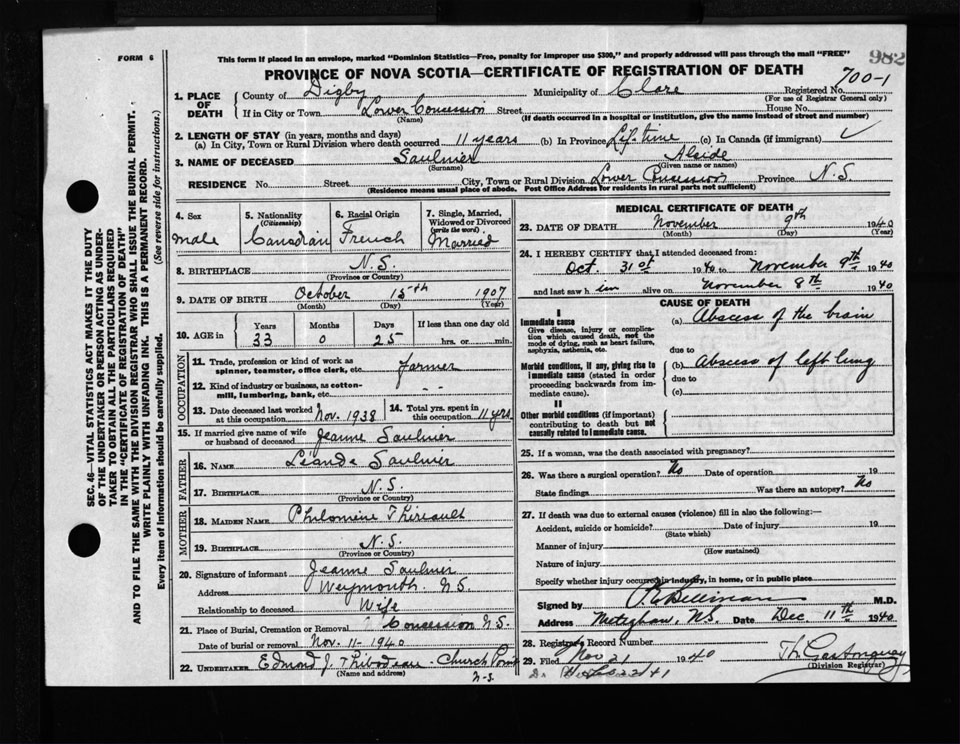 FORM 6
This form if placed in an envelope, marked "Dominion Statistics—Free, penalty for improper use $300," and properly addressed will pass through the mail "FREE"
982
PROVINCE OF NOVA SCOTIA—CERTIFICATE OF REGISTRATION OF DEATH
700-1
1. PLACE OF DEATH
County of Digby Municipality of Clare Registered No.
(For use of Registrar General only)
If in City or Town Lower Concession Street House No.
(Name) (If death occurred in a hospital or institution, give the name instead of street and number)
2. LENGTH OF STAY (in years, months and days)
(a) In City, Town or Rural Division where death occurred 11 years (b) In Province Life time (c) In Canada (if immigrant)
3. NAME OF DECEASED Saulnier Alside
(Surname) (Given name or names)
RESIDENCE No. Street City, Town or Rural Division Lower Concession Province N.S.
(Residence means usual place of abode. Post Office Address for residents in rural parts not sufficient)
4. Sex male
5. Nationality (Citizenship) Canadian
6. Racial Origin French
7. Single, Married, Widowed or Divorced (write the word) Married
8. BIRTHPLACE N.S.
(Province or Country)
9. DATE OF BIRTH October 15th 1907
(Month) (Day) (Year)
10. AGE in Years Months Days If less than one day old
33 0 25 hrs. or min.
OCCUPATION
11. Trade, profession or kind of work as spinner, teamster, office clerk, etc. Farmer
12. Kind of industry or business, as cotton-mill, lumbering, bank, etc. - -
13. Date deceased last worked at this occupation Nov. 1938
14. Total yrs. spent in this occupation 11 yrs
15. If married give name of wife or husband of deceased Jeanne Saulnier
FATHER
16. NAME Léande Saulnier
17. BIRTHPLACE N.S.
(Province or Country)
MOTHER
18. MAIDEN NAME Philomène Thireault
19. BIRTHPLACE N.S.
(Province or Country)
20. Signature of informant Jeanne Saulnier
Address Weymouth N.S.
Relationship to deceased Wife
21. Place of Burial, Cremation or Removal Concession N.S.
Date of burial or removal Nov. 11 - 1940
22. UNDERTAKER Edmond J. Thibodeau - Church Point
(Name and address) N-S.
MEDICAL CERTIFICATE OF DEATH
23. DATE OF DEATH November 9th 1940
(Month) (Day) (Year)
24. I HEREBY CERTIFY that I attended deceased from:
Oct. 31st 1940 to November 9th 1940
and last saw him alive on November 8th 1940
CAUSE OF DEATH
I
Immediate cause
Give disease, injury or complication which caused death, not the mode of dying, such as heart failure, asphyxia, asthenia, etc.
(a) Abscess of the brain
due to
Morbid conditions, if any, giving rise to immediate cause (stated in order proceeding backwards from immediate cause).
(b) Abscess of left lung
due to
(c)
II
Other morbid conditions (if important) contributing to death but not causally related to immediate cause.
25. If a woman, was the death associated with pregnancy?
26. Was there a surgical operation? No Date of operation 19
State findings Was there an autopsy? No
27. If death was due to external causes (violence) fill in also the following:—
Accident, suicide or homicide? Date of injury 19
(State which)
Manner of injury
(How sustained)
Nature of injury
Specify whether injury occurred in industry, in home, or in public place
Signed by M.D.
Address Meteghan, N.S. Date Dec. 11th 1940
28. Registrar's Record Number
29. Filed Nov 21 1940
(Division Registrar)
SEC. 46—VITAL STATISTICS ACT MAKES IT THE DUTY
OF THE UNDERTAKER OR PERSON ACTING AS UNDER-
TAKER TO OBTAIN ALL THE PARTICULARS REQUIRED
IN THE "CERTIFICATE OF REGISTRATION OF DEATH"
AND TO FILE THE SAME WITH THE DIVISION REGISTRAR WHO SHALL ISSUE THE BURIAL PERMIT.
WRITE PLAINLY WITH UNFADING INK. THIS IS A PERMANENT RECORD.
Every item of information should be carefully supplied. (See reverse side for instructions.)